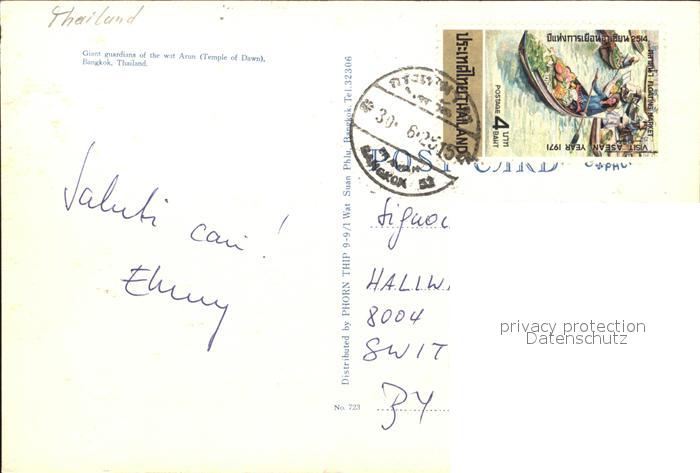 Thailand
Giant guardians of the wat Arun (Temple of Dawn),
Bangkok, Thailand.
Saluti cari!
Distributed by PHORN THIP 9-9/1 Wat Suan Phlu, Bangkok Tel.32306
No. 723
POST CARD
ปีแห่งการเยือนอาเซียน 2514
ประเทศไทย THAILAND
POSTAGE 4 บาท BAHT
FLOATING MARKET
VISIT ASEAN YEAR 1971
BANGKOK
8004
BY
privacy protection
Datenschutz